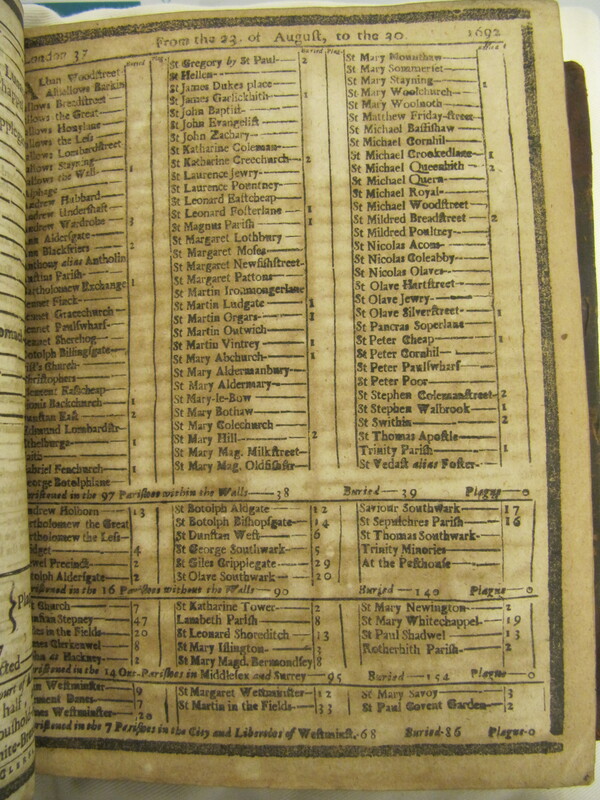 London 37 From the 23. of Auguſt, to the 30. 1692
Buried Plag.
Buried Plag.
Lban Woodſtreet
Alhallows Barkin
llows Breadſtreet
llows the Great
llows Honylane
llows the Leſs
llows Lombardſtreet
llows Stayning
llows the Wall 1
lphage
ndrew Hubbard
ndrew Underſhaft
ndrew Wardrobe 3
nn Alderſgate
nn Blackfriers 2
nthony alias Antholin
uſtins Pariſh
artholomew Exchange 1
ennet Finck
ennet Gracechurch
ennet Paulſwharf
ennet Sherehog
otolph Billingſgate
iſt's Church
hriſtophers
lement Eaſtcheap
ionis Backchurch 1
unſtan Eaſt 2
dmund Lombardſtr
thelburga 1
aith
abriel Fenchurch 1
eorge Botolphlane
St Gregory by St Paul 2
St Hellen
St James Dukes place
St James Garlickhith 1
St John Baptiſt
St John Evangeliſt
St John Zachary
St Katharine Coleman
St Katharine Creechurch 2
St Laurence Jewry
St Laurence Pountney
St Leonard Eaſtcheap
St Leonard Foſterlane 1
St Magnus Pariſh 1
St Margaret Lothbury
St Margaret Moſes
St Margaret Newfiſhſtreet
St Margaret Pattons
St Martin Ironmongerlane
St Martin Ludgate 1
St Martin Orgars 1
St Martin Outwich
St Martin Vintrey 1
St Mary Abchurch 1
St Mary Aldermanbury
St Mary Aldermary
St Mary-le-Bow
St Mary Bothaw
St Mary Colechurch
St Mary Hill 2
St Mary Mag. Milkſtreet
St Mary Mag. Oldfiſhſtr
St Mary Mounthaw
St Mary Sommerſet
St Mary Stayning
St Mary Woolchurch
St Mary Woolnoth
St Matthew Friday-ſtreet
St Michael Baſſiſhaw
St Michael Cornhil
St Michael Crookedlane 1
St Michael Queenhith 2
St Michael Quern
St Michael Royal
St Michael Woodſtreet
St Mildred Breadſtreet 2
St Mildred Poultney
St Nicolas Acons
St Nicolas Coleabby
St Nicolas Olaves
St Olave Hartſtreet
St Olave Jewry
St Olave Silverſtreet 1
St Pancras Soperlane
St Peter Cheap 1
St Peter Cornhil
St Peter Paulſwharf
St Peter Poor
St Stephen Colemanſtreet 2
St Stephen Walbrook 1
St Swithin 2
St Thomas Apoſtle
Trinity Pariſh 1
St Vedaſt alias Foſter
riſtened in the 97 Pariſhes within the Walls 38 Buried 39 Plague 0
ndrew Holborn 13
rtholomew the Great
rtholomew the Leſs
ridget 4
wel Precinct 2
tolph Alderſgate 2
St Botolph Aldgate 12
St Botolph Biſhopſgate 14
St Dunſtan Weſt 6
St George Southwark 5
St Giles Cripplegate 29
St Olave Southwark 20
Saviour Southwark 17
St Sepulchres Pariſh 16
St Thomas Southwark
Trinity Minories
At the Peſthouſe
riſtened in the 16 Pariſhes without the Walls 90 Buried 140 Plague 0
t Church 7
nſtan Stepney 47
les in the Fields 20
mes Clerkenwel 8
hn at Hackney 2
St Katharine Tower 2
Lambeth Pariſh 8
St Leonard Shoreditch 13
St Mary Iſlington 3
St Mary Magd. Bermondſey 8
St Mary Newington 2
St Mary Whitechappel 19
St Paul Shadwel 13
Rotherhith Pariſh 2
riſtened in the 14 Out-Pariſhes in Middleſex and Surrey 95 Buried 154 Plague 0
Weſtminſter 9
ment Danes 7
mes Weſtminſter 20
St Margaret Weſtminſter 12
St Martin in the Fields 33
St Mary Savoy 3
St Paul Covent Garden 2
riſtened in the 7 Pariſhes in the City and Liberties of Weſtminſt. 68 Buried 86 Plague 0